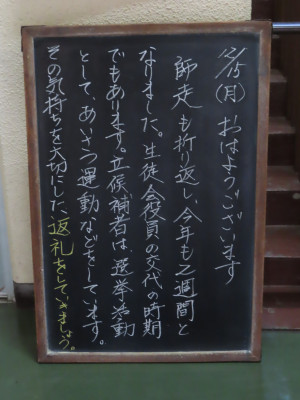 12/15(月) おはようございます
師走も折り返し、今年も2週間と
なりました。生徒会役員の交代の時期
でもあります。立候補者は、選挙活動
として、あいさつ運動などをしています。
その気持ちを大切にした、返礼をしていきましょう。